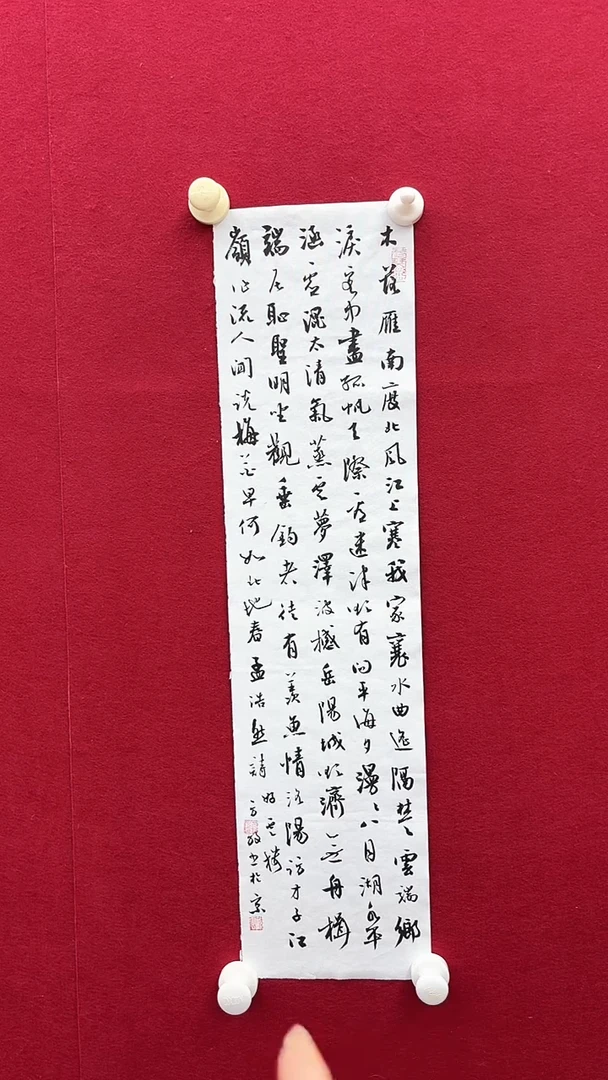 木落雁南度北風江上寒我家襄水曲遥隔楚雲端鄉
淚客中盡孤帆天際看迷津欲有問平海夕漫漫八月湖水平
涵虛混太清氣蒸雲夢澤波撼岳陽城欲濟無舟楫
端居恥聖明坐觀垂釣者徒有羨魚情洛陽訪才子江
嶺作流人聞說梅花早何如北地春 孟浩然詩